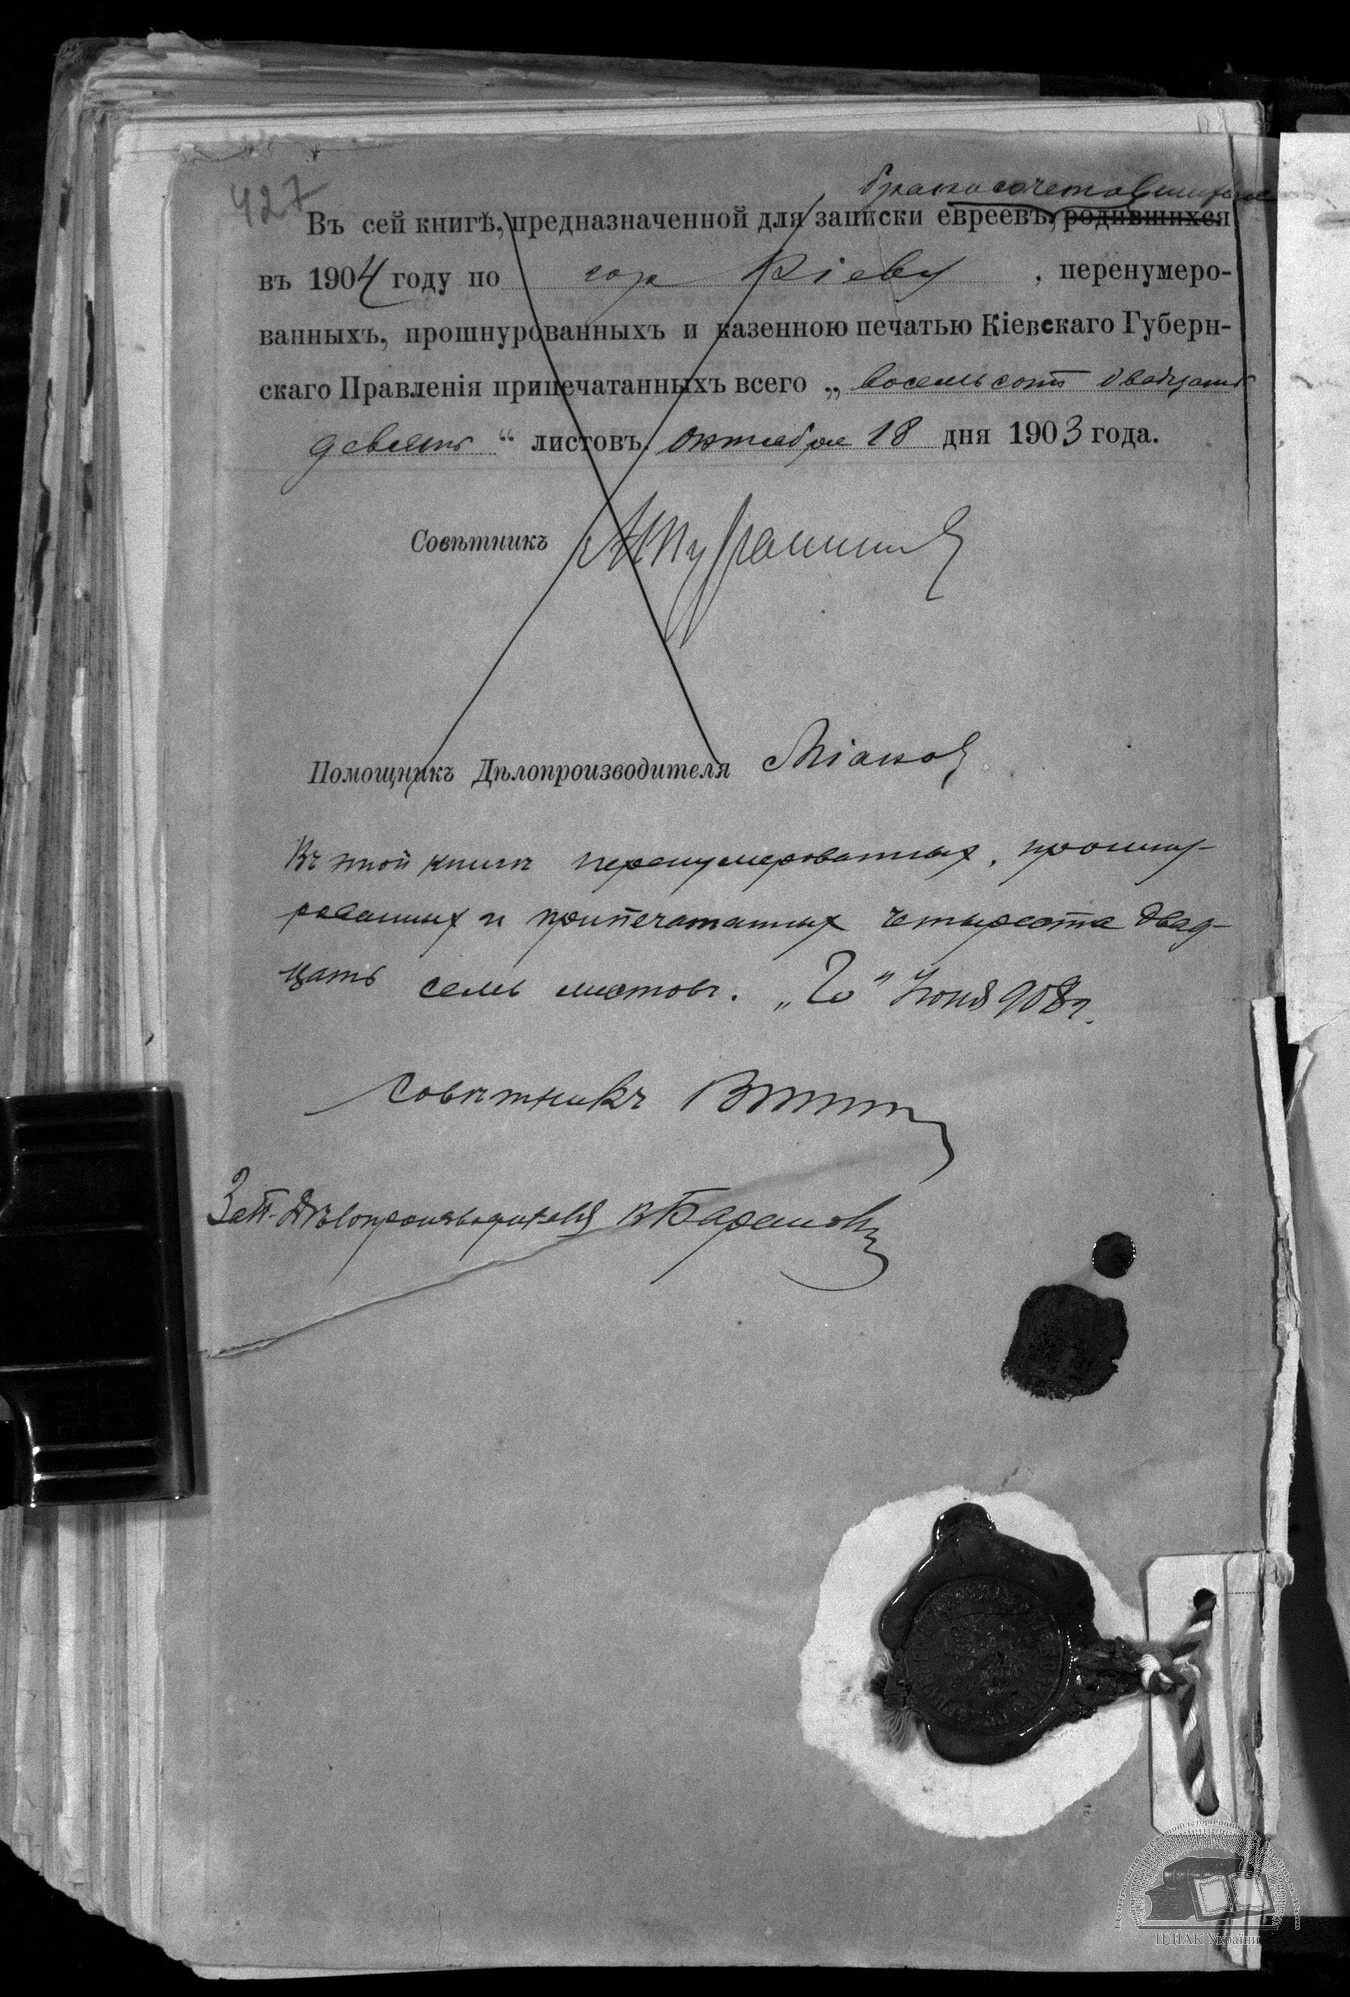 427
бракосочетавшихся
Въ сей книгѣ, предназначенной для записки евреевъ, родившихся
въ 1904 году по гор Кіеву, перенумеро-
ванныхъ, прошнурованныхъ и казенною печатью Кіевскаго Губерн-
скаго Правленія припечатанныхъ всего „ восемьсотъ двадцать
девять “ листовъ. Октября 18 дня 1903 года.
Совѣтникъ
Помощникъ Дѣлопроизводителя
Въ этой книгѣ перенумерованныхъ, прошну-
рованныхъ и припечатанныхъ четыреста двад-
цать семь листовъ. „20“ Іюня 908 г.
Совѣтникъ
Зав. Дѣлопроизводителя
ЦДІАК України